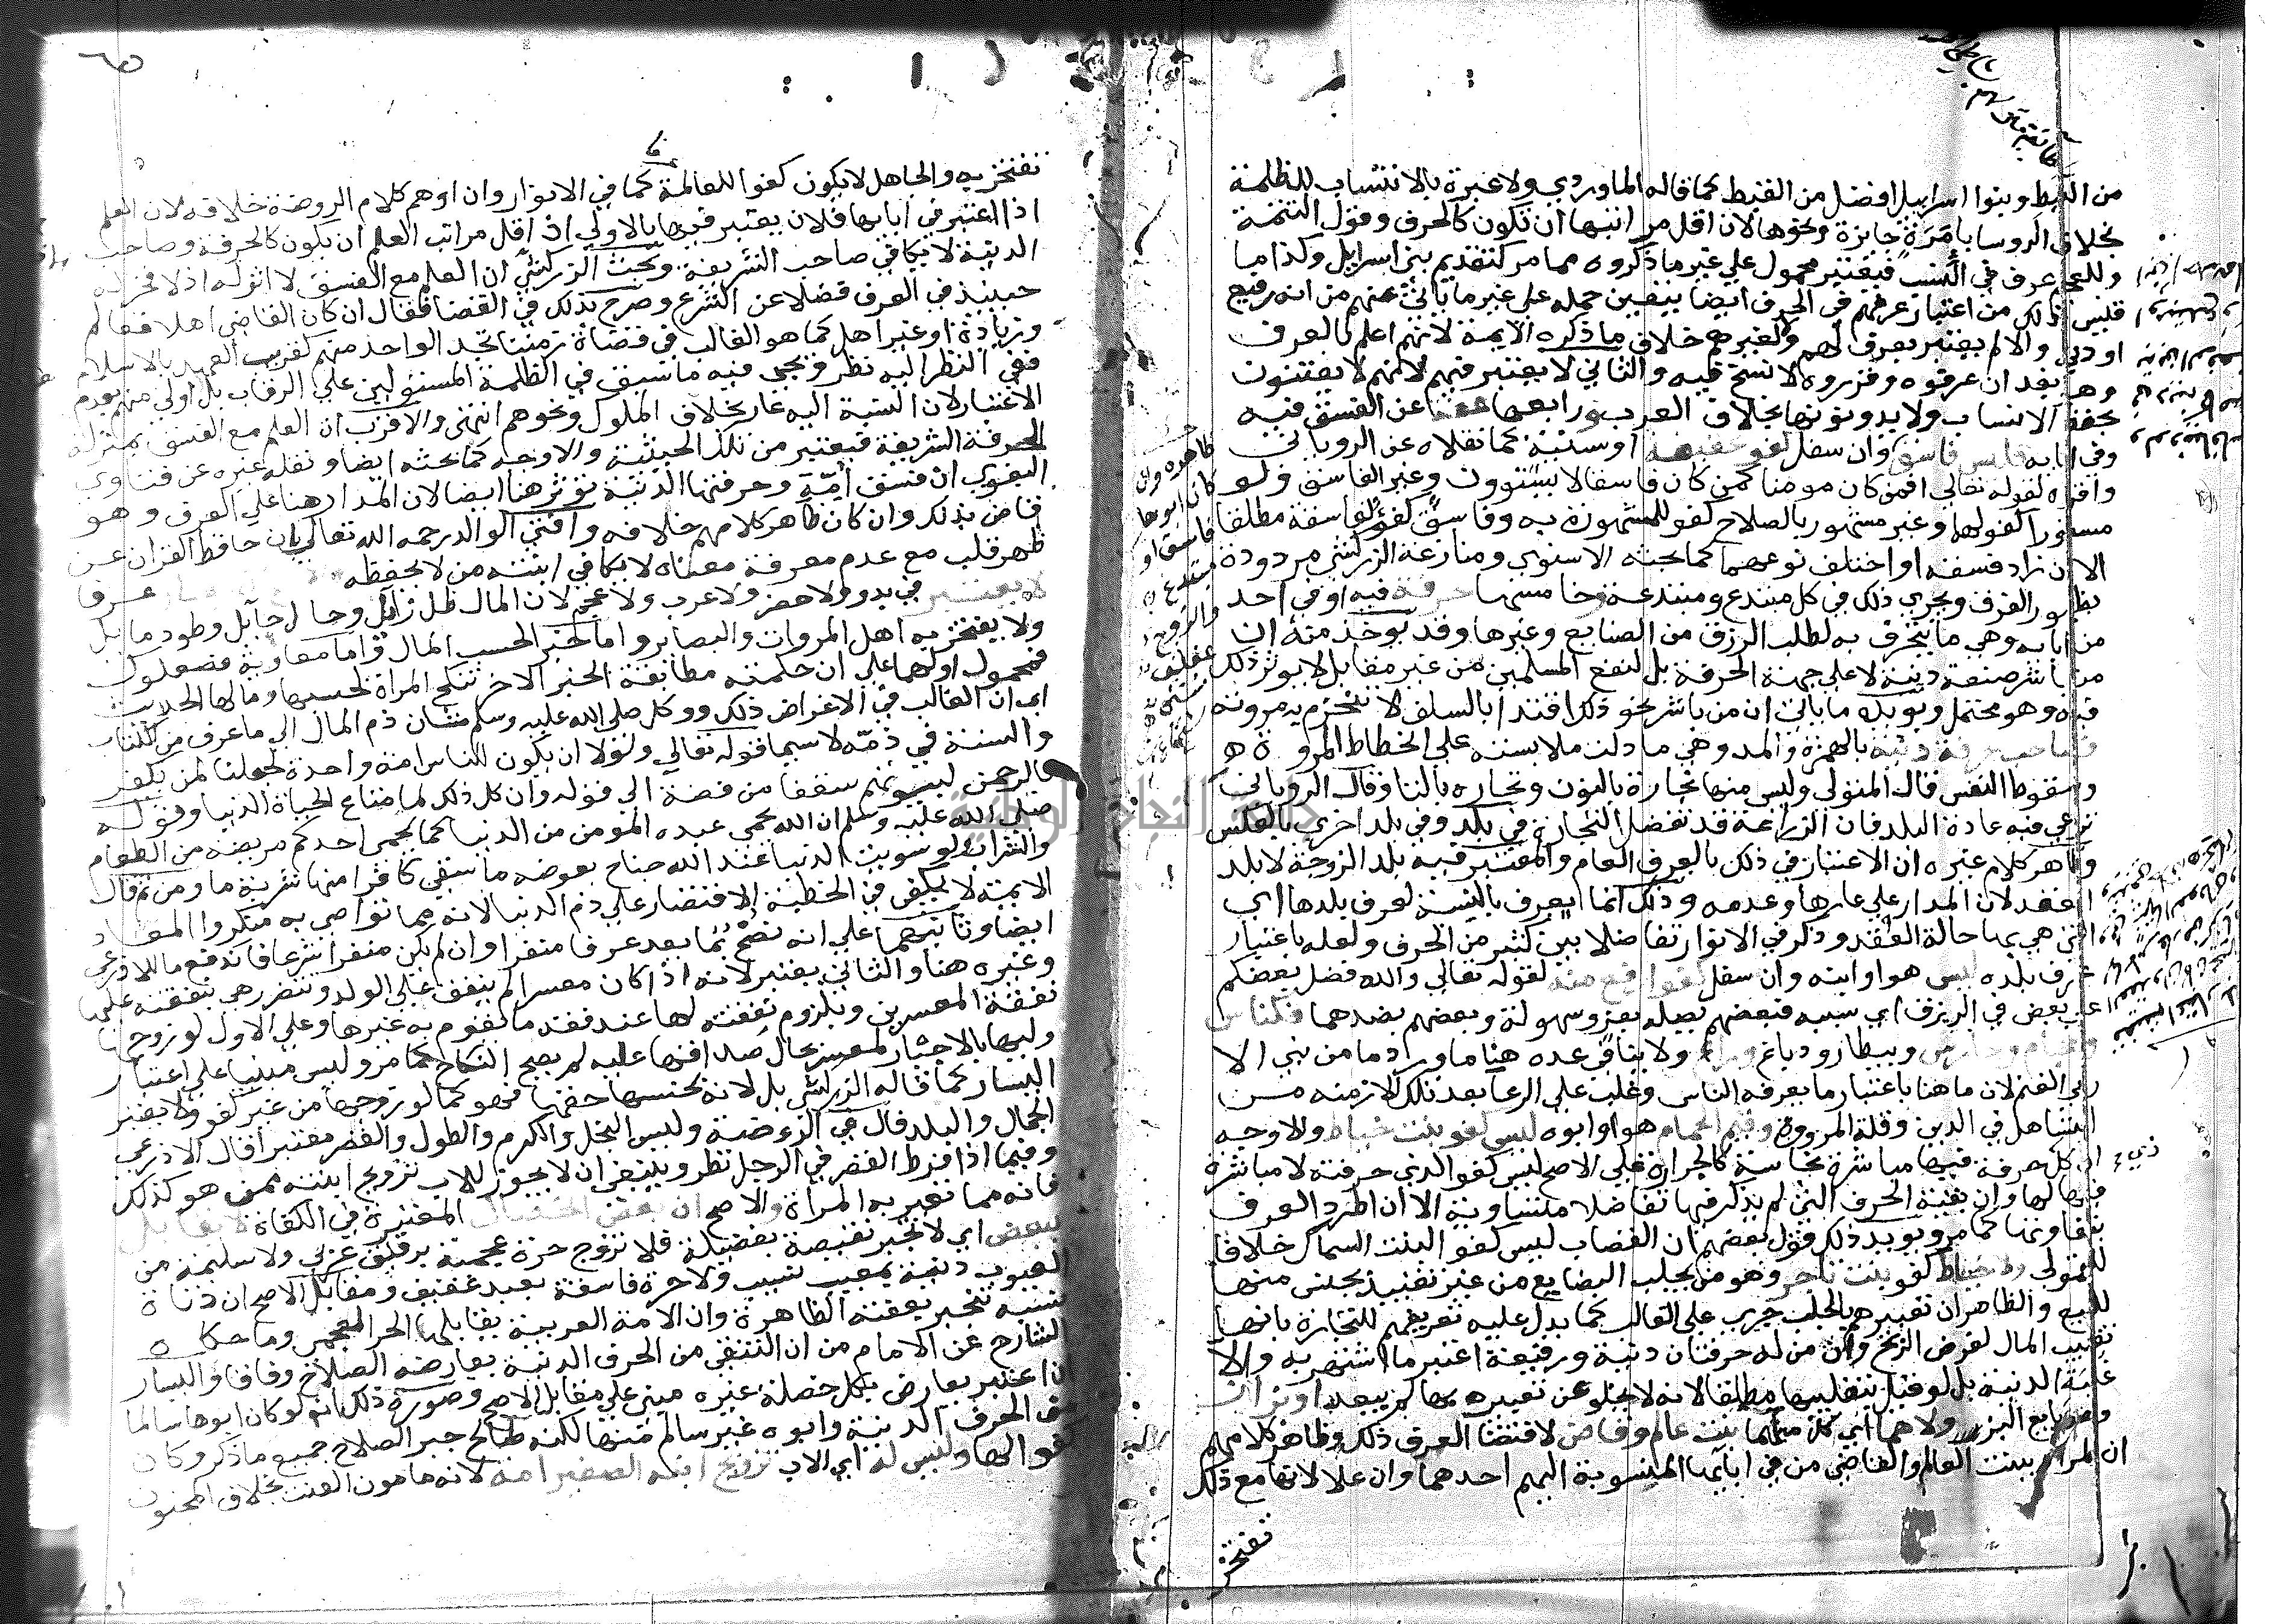 من القبط وبنوا اسرايل افضل من القبط كما قاله الماوردي ولا عبرة بالانتساب للظلمة
بخلاف الروسا بامرة جايزة ونحوها لان اقل مراتبها ان تكون كالحرف وقول التتمة
وللعجم عرف في النسب فيعتبر محمول علي غير ما ذكروه مما مر كتقديم بني اسرايل وكذا ما
قليس ذلك من اعتبار عرفهم في الحرف ايضا يتعين حمله علي غير ما ياتي عنهم من انه رفيع
او دني والا لم يعتبر بعرف لهم ولغيرهم خلاف ما ذكره الايمة لانهم اعلم بالعرف
وهو بعد ان عرفوه وقرروه لا نسخ فيه والثاني لا يعتبر فيهم لانهم لا يعتنون
بحفظ الانساب ولا يدونونها بخلاف العرب ورابعها عفة عن الفسق فيه
وفي ابايه فليس فاسق وان سفل كفو عفيفة او سنية كما نقلاه عن الروياني
واقراه لقوله تعالي افمن كان مومنا كمن كان فاسقا لا يستوون وغير الفاسق ولو
مستورا كفو لها وغير مشهور بالصلاح كفو للمشهورة به وفاسق كفو لفاسقة مطلقا
الا ان زاد فسقه او اختلف نوعهما كما بحثه الاسنوي ومنازعة الزركشي مردودة
بظهور الفرق ويجري ذلك في كل مبتدع ومبتدعة وخامسها حرفة فيه او في احد
من ابايه وهي ما يتحرف به لطلب الرزق من الصنايع وغيرها وقد يوخذ منه ان
من باشر صنعة دنية لا علي جهة الحرفة بل لنفع المسلمين من غير مقابل لا يوثر ذلك
فيه وهو محتمل ويويده ما ياتي ان من باشر نحو ذلك اقتدا بالسلف لا تنخرم به مروته
فصاحب حرفة دنيئة بالهمزة والمد وهي ما دلت ملابسته علي انحطاط المروة
وسقوط النفس قال المتولي وليس منها نجارة بالنون وتجارة بالتا وقال الروياني
تراعي فيه عادة البلد فان الزراعة قد تفضل التجارة في بلد وفي بلد اخري بالعكس
وظاهر كلام غيره ان الاعتبار في ذلك بالعرف العام والمعتبر فيه بلد الزوجة لا بلد
العقد لان المدار علي عارها وعدمه وذلك انما يعرف بالنسبة لعرف بلدها اي
التي هي بها حالة العقد وذكر في الانوار تفاضلا بين كثير من الحرف ولعله باعتبار
عرف بلده ليس هو او ابنه وان سفل كفو ارفع منه لقوله تعالي والله فضل بعضكم
علي بعض في الرزق اي سببه فبعضهم يصله بعز وسهولة وبعضهم بضدهما فكناس
وحجام وحارس وبيطار ودباغ وراع ولا ينافي عده هنا ما ورد ما من نبي الا
رعي الغنم لان ما هنا باعتبار ما يعرفه الناس وغلب علي الرعا بعد تلك الازمنه من
التساهل في الدين وقلة المروة وقيم الحمام هو او ابوه ليس كفو بنت خياط والاوجه
ان كل حرفة فيها مباشرة نجاسة كالجزارة علي الاصح ليس كفو الذي حرفته لا مباشرة
فيها لها وان بقية الحرف التي لم يذكر فيها تفاضلا متساوية الا ان اطرد العرف
بتفاوتها كما مر ويويد ذلك قول بعضهم ان القصاب ليس كفو البنت السماك خلافا
للقمولي ولا خياط كفو بنت تاجر وهو من يجلب البضايع من غير تقييد بجنس منها
للبيع والظاهر ان تعبيرهم بالجلب جري علي الغالب كما يدل عليه تعريفهم للتجارة بانها
تقليب المال لغرض الربح وان من له حرفتان دنية ورفيعة اعتبر ما اشتهر به والا
غلبت الدنية بل لو قيل بتغليبها مطلقا لانه لا يخلو عن تعييره بها لم يبعد او تراب
وهو بايع البز ولا هما اي كل منهما بنت عالم وقاض لاقتضا العرف ذلك وظاهر كلامهم
ان المراد ببنت العالم والقاضي من في ابايها المنسوبة اليهم احدهما وان علا لانها مع ذلك
تفتخر
تفتخر به والجاهل لا يكون كفوا للعالمة كما في الانوار وان اوهم كلام الروضة خلافه لان العلم
اذا اعتبر في ابايها فلان يعتبر فيها بالاولي اذ اقل مراتب العلم ان يكون كالحرفة وصاحب
الدنية لا يكافي صاحب الشريفة وبحث الزركشي ان العلم مع الفسق لا اثر له اذ لا فخر له
حينيذ في العرف فضلا عن الشرع وصرح بذلك في القضا فقال ان كان القاضي اهلا فعالم
وزيادة او غير اهل كما هو الغالب في قضاة زمننا تجد الواحد منهم كقريب العهد بالاسلام
ففي النظر اليه نظر ويجي فيه ما سبق في الظلمة المستولين علي الرقاب بل اولي منهم بعدم
الاعتبار لان النسبة اليه عار بخلاف الملوك ونحوهم انتهي والاقرب ان العلم مع الفسق بمنزلة
الحرفة الشريفة فيعتبر من تلك الحيثية والاوجه كما بحثه ايضا ونقله غيره عن فتاوي
البغوي ان فسق امه وحرفتها الدنية توثر هنا ايضا لان المدار هنا علي العرف وهو
قاض بذلك وان كان ظاهر كلامهم خلافه وافتي الوالد رحمه الله تعالي بان حافظ القران عن
ظهر قلب مع عدم معرفة معناه لا يكافي ابنته من لا يحفظه
لا يعتبر في بدو ولا حضر ولا عرب ولا عجم لان المال ظل زايل وحال حايل وطود مايل
ولا يفتخر به اهل المروات والبصاير واما خبر الحسب المال واما معاوية فصعلوك
فمحمول اولهما علي ان حكمته مطابقة الخبر الاخر تنكح المراة لحسبها ومالها الحديث
اي ان الغالب في الاغراض ذلك ووكل صلي الله عليه وسلم بيان ذم المال الي ما عرف من الكتاب
والسنة في ذمه لا سيما قوله تعالي ولولا ان يكون الناس امة واحدة لجعلنا لمن يكفر
بالرحمن لبيوتهم سقفا من فضة الي قوله وان كل ذلك لما متاع الحياة الدنيا وقوله
صلي الله عليه وسلم ان الله يحمي عبده المومن من الدنيا كما يحمي احدكم مريضه من الطعام
والشراب ولو سويت الدنيا عند الله جناح بعوضه ما سقي كافرا منها شربة ما ومن ثم قال
الايمة لا يكفي في الخطبة الاقتصار علي ذم الدنيا لانه مما تواصي به منكروا المعاد
ايضا وثانيهما علي انه نصح بما يعد عرفا منفرا وان لم يكن منفرا شرعا فاندفع ما للاذرعي
وغيره هنا والثاني يعتبر لانه اذا كان معسرا لم ينفق علي الولد وتتضرر هي بنفقته عليها
نفقة المعسرين ويلزوم نفقته لها عند فقد ما تقوم به غيرها وعلي الاول لو زوجها
وليها بالاجبار لمعسر بحال صداقها عليه لم يصح النكاح كما مر وليس مبنيا علي اعتبار
اليسار كما قاله الزركشي بل لانه بخسها حقها فهو كما لو زوجها من غير كفو ولا يعتبر
الجمال والبلد قال في الروضة وليس البخل والكرم والطول والقصر معتبرا قال الاذرعي
وفيما اذا فرط القصر في الرجل نظر وينبغي ان لا يجوز للاب تزويج ابنته ممن هو كذلك
فانه مما تعير به المراة والاصح ان بعض الخصال المعتبرة في الكفاة لا يقابل
ببعض اي لا تجبر نقيصة بفضيلة فلا تزوج حرة عجمية برقيق عربي ولا سليمة من
العيوب دنية بمعيب نسيب ولا حرة فاسقة بعبد عفيف ومقابل الاصح ان دناة
نسبه تنجبر بعفته الظاهرة وان الامة العربية يقابلها الحر العجمي وما حكاه
الشارح عن الامام من ان التنقي من الحرف الدنية يعارضه الصلاح وفاقا واليسار
ان اعتبر يعارض بكل خصلة غيره مبني علي مقابل الاصح وصورة ذلك انه لو كان ابوها سالما
من الحرف الدنية وابوه غير سالم منها لكنه صالح جبر الصلاح جميع ما ذكر وكان
كفوا لها وليس له اي الاب تزويج ابنه الصغير امة لانه مامون العنت بخلاف المجنون